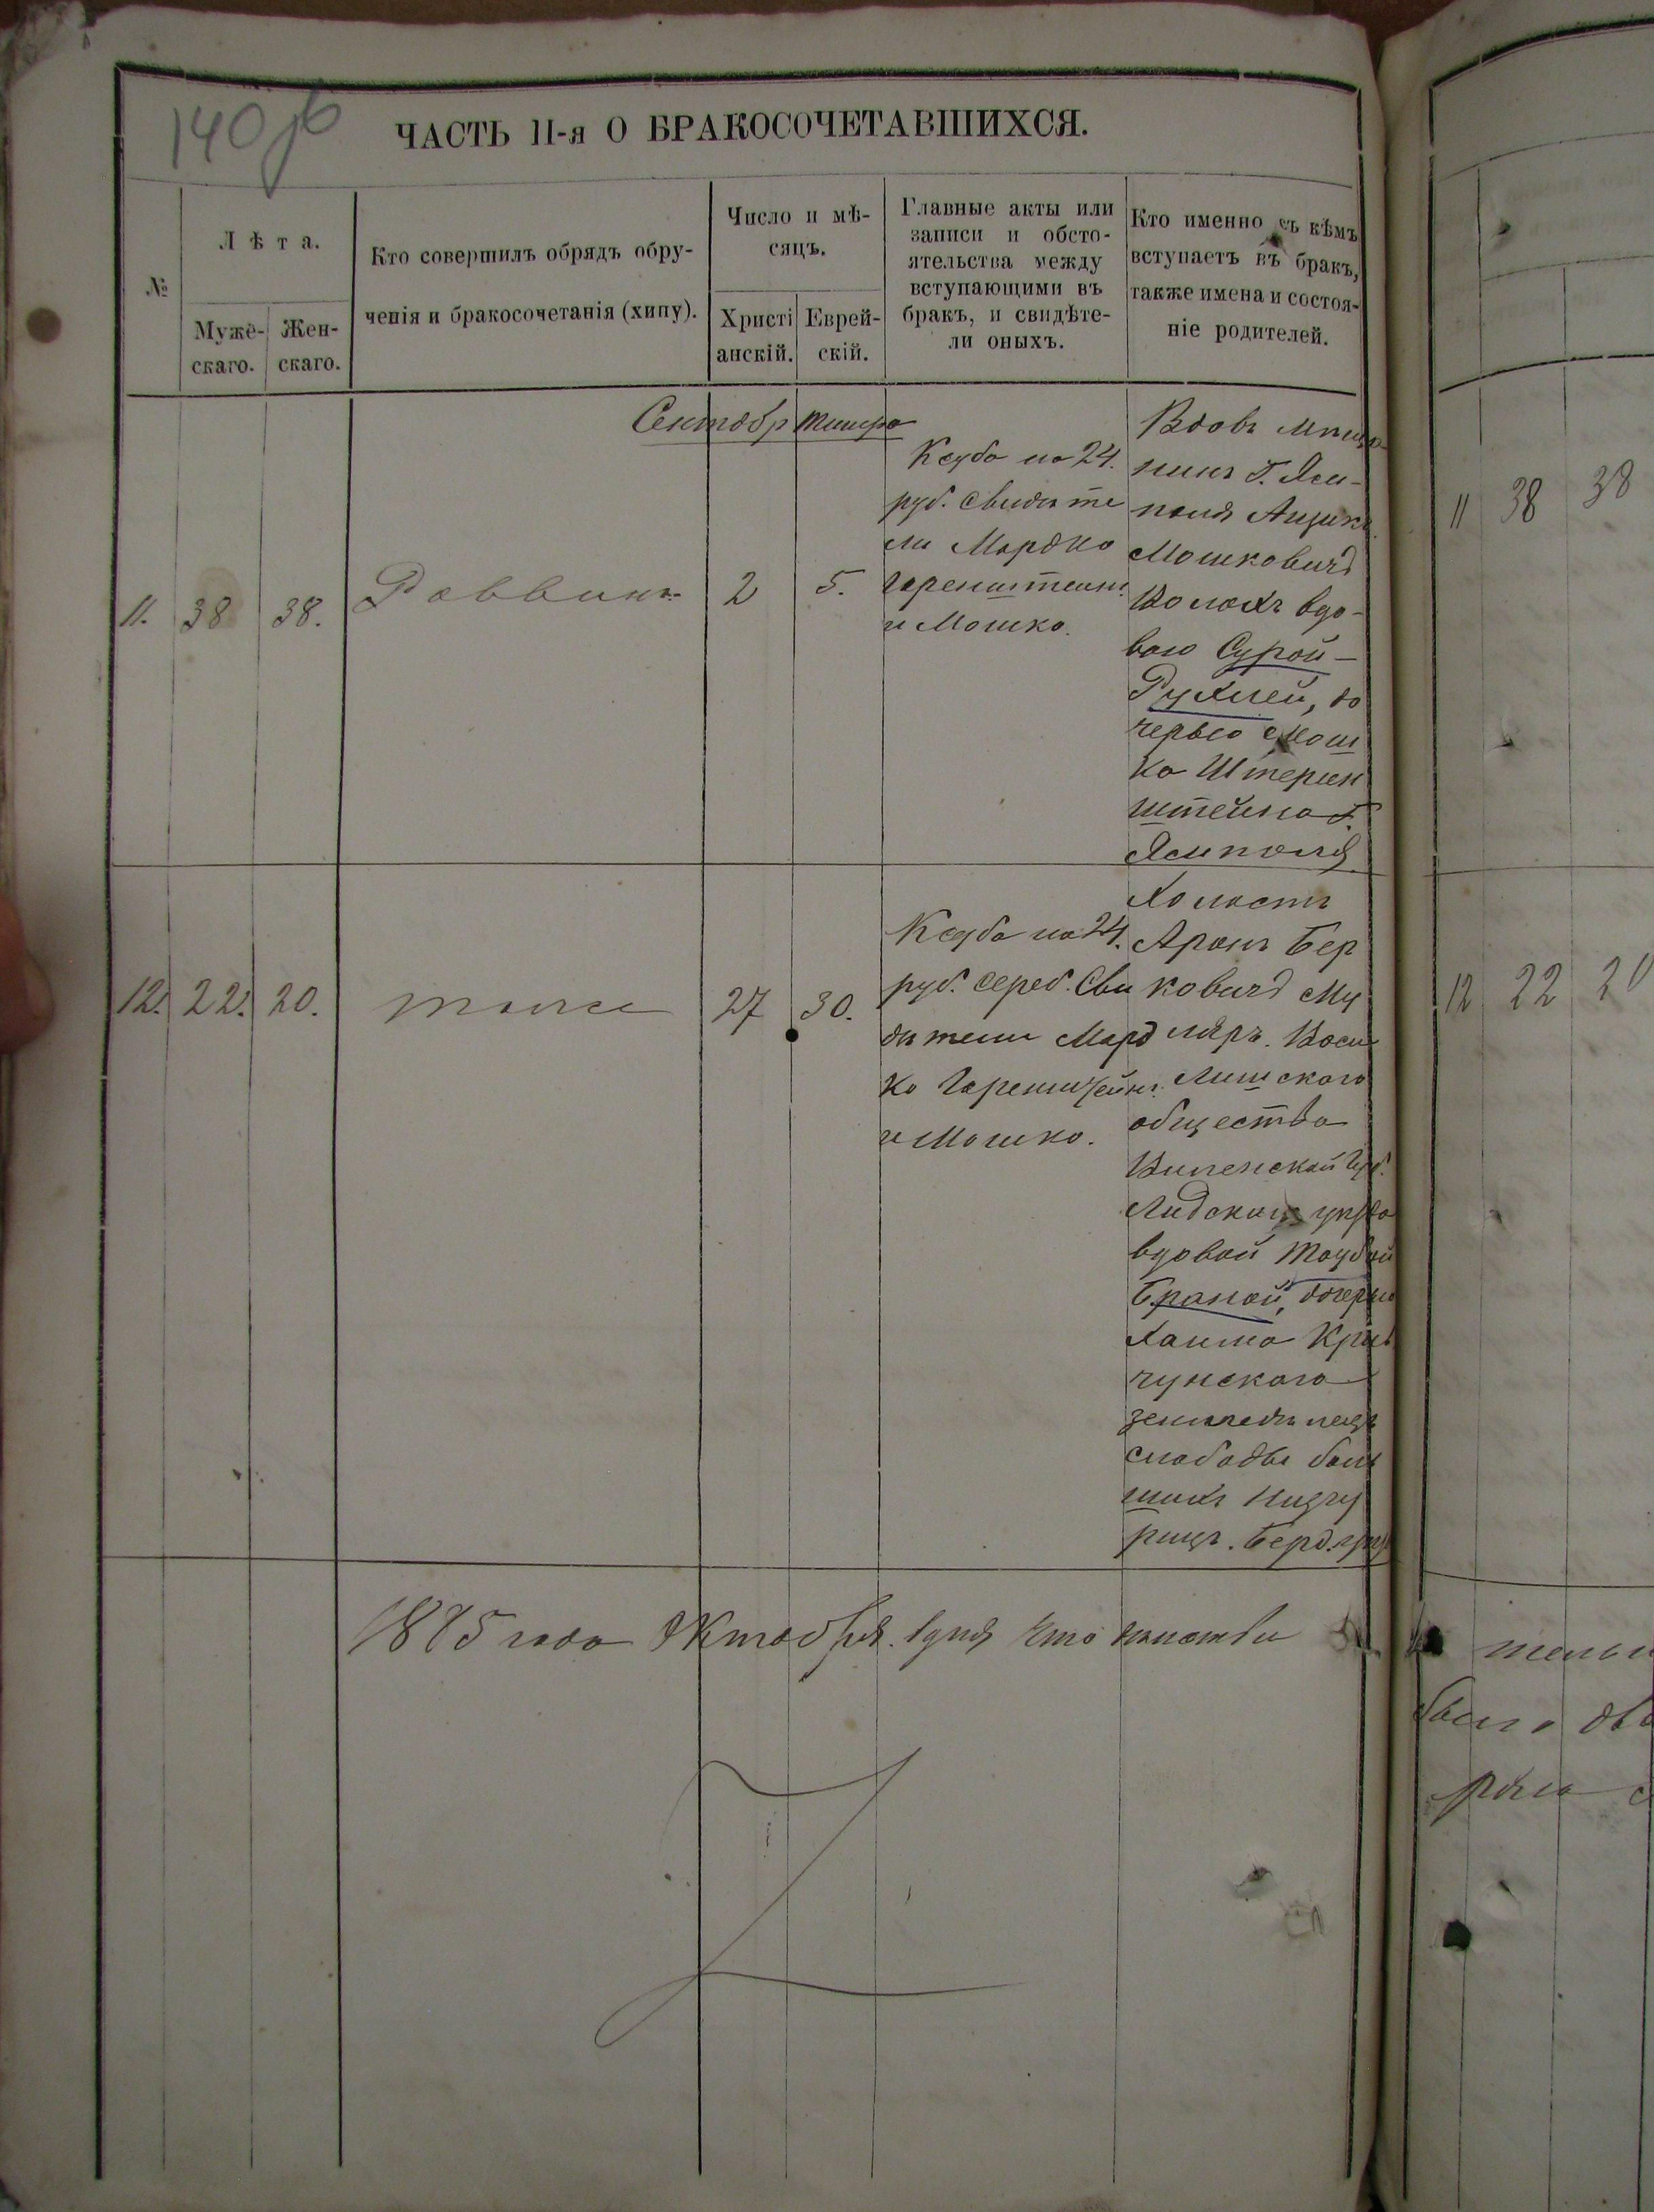 140об
ЧАСТЬ II-я О БРАКОСОЧЕТАВШИХСЯ.
№
Лѣта.
Муже-
скаго.
Жен-
скаго.
Кто совершилъ обрядъ обру-
ченія и бракосочетанія (хипу).
Число и мѣ-
сяцъ.
Христі
анскій.
Еврей-
скій.
Главные акты или
записи и обсто-
ятельства между
вступающими въ
бракъ, и свидѣте-
ли оныхъ.
Кто именно съ кѣмъ
вступаетъ въ бракъ,
также имена и состоя-
ніе родителей.
Сентябр Тишра
11.
38
38.
Раввинъ
2
5.
Кеуба на 24.
руб. Свидѣте
ли Мордко
Горенштеин.
и Мошко.
Вдовъ мѣща
нинъ Г. Ям-
поля Анцихъ
Мошковичъ
Волохъ вдо-
вою Сурой-
Рухлей, до
черью Мош
ка Штерен
штейна г.
Ямполя
12.
22.
20.
тоже
27
30.
Кеуба на 24.
руб. сереб. Сви
дѣтелиМорд
ко Горенштейнъ.
и Мошко.
Холостъ
Аронъ Бер
ковичъ Му
ляръ. Васи
лишского
общества
Виленской Губ.
Лидскаго уѣзда
вдовой Таубой
Браной, дочерью
Хаима Крив
чунского
земледѣлецъ
слободы боль
шихъ Низгу
рицъ. Берд. уѣз
1875 года Октября. 1 дня что дѣйстви
11
38
38
12
22
20
тельн
было два